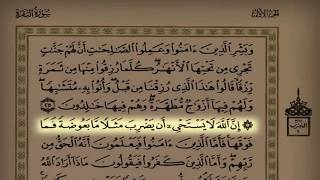 سورة البقرة
الجزء الأول
وبشر الذين ءامنوا وعملوا الصلحت أن لهم جنت
تجرى من تحتها الأنهر كلما رزقوا منها من ثمرة
رزقا قالوا هذا الذى رزقنا من قبل وأتوا به متشبها
ولهم فيها أزوج مطهرة وهم فيها خلدون ٢٥
إن الله لا يستحى أن يضرب مثلا ما بعوضة فما
فوقها فأما الذين ءامنوا فيعلمون أنه الحق من
ربهم وأما الذين كفروا فيقولون ماذا أراد الله